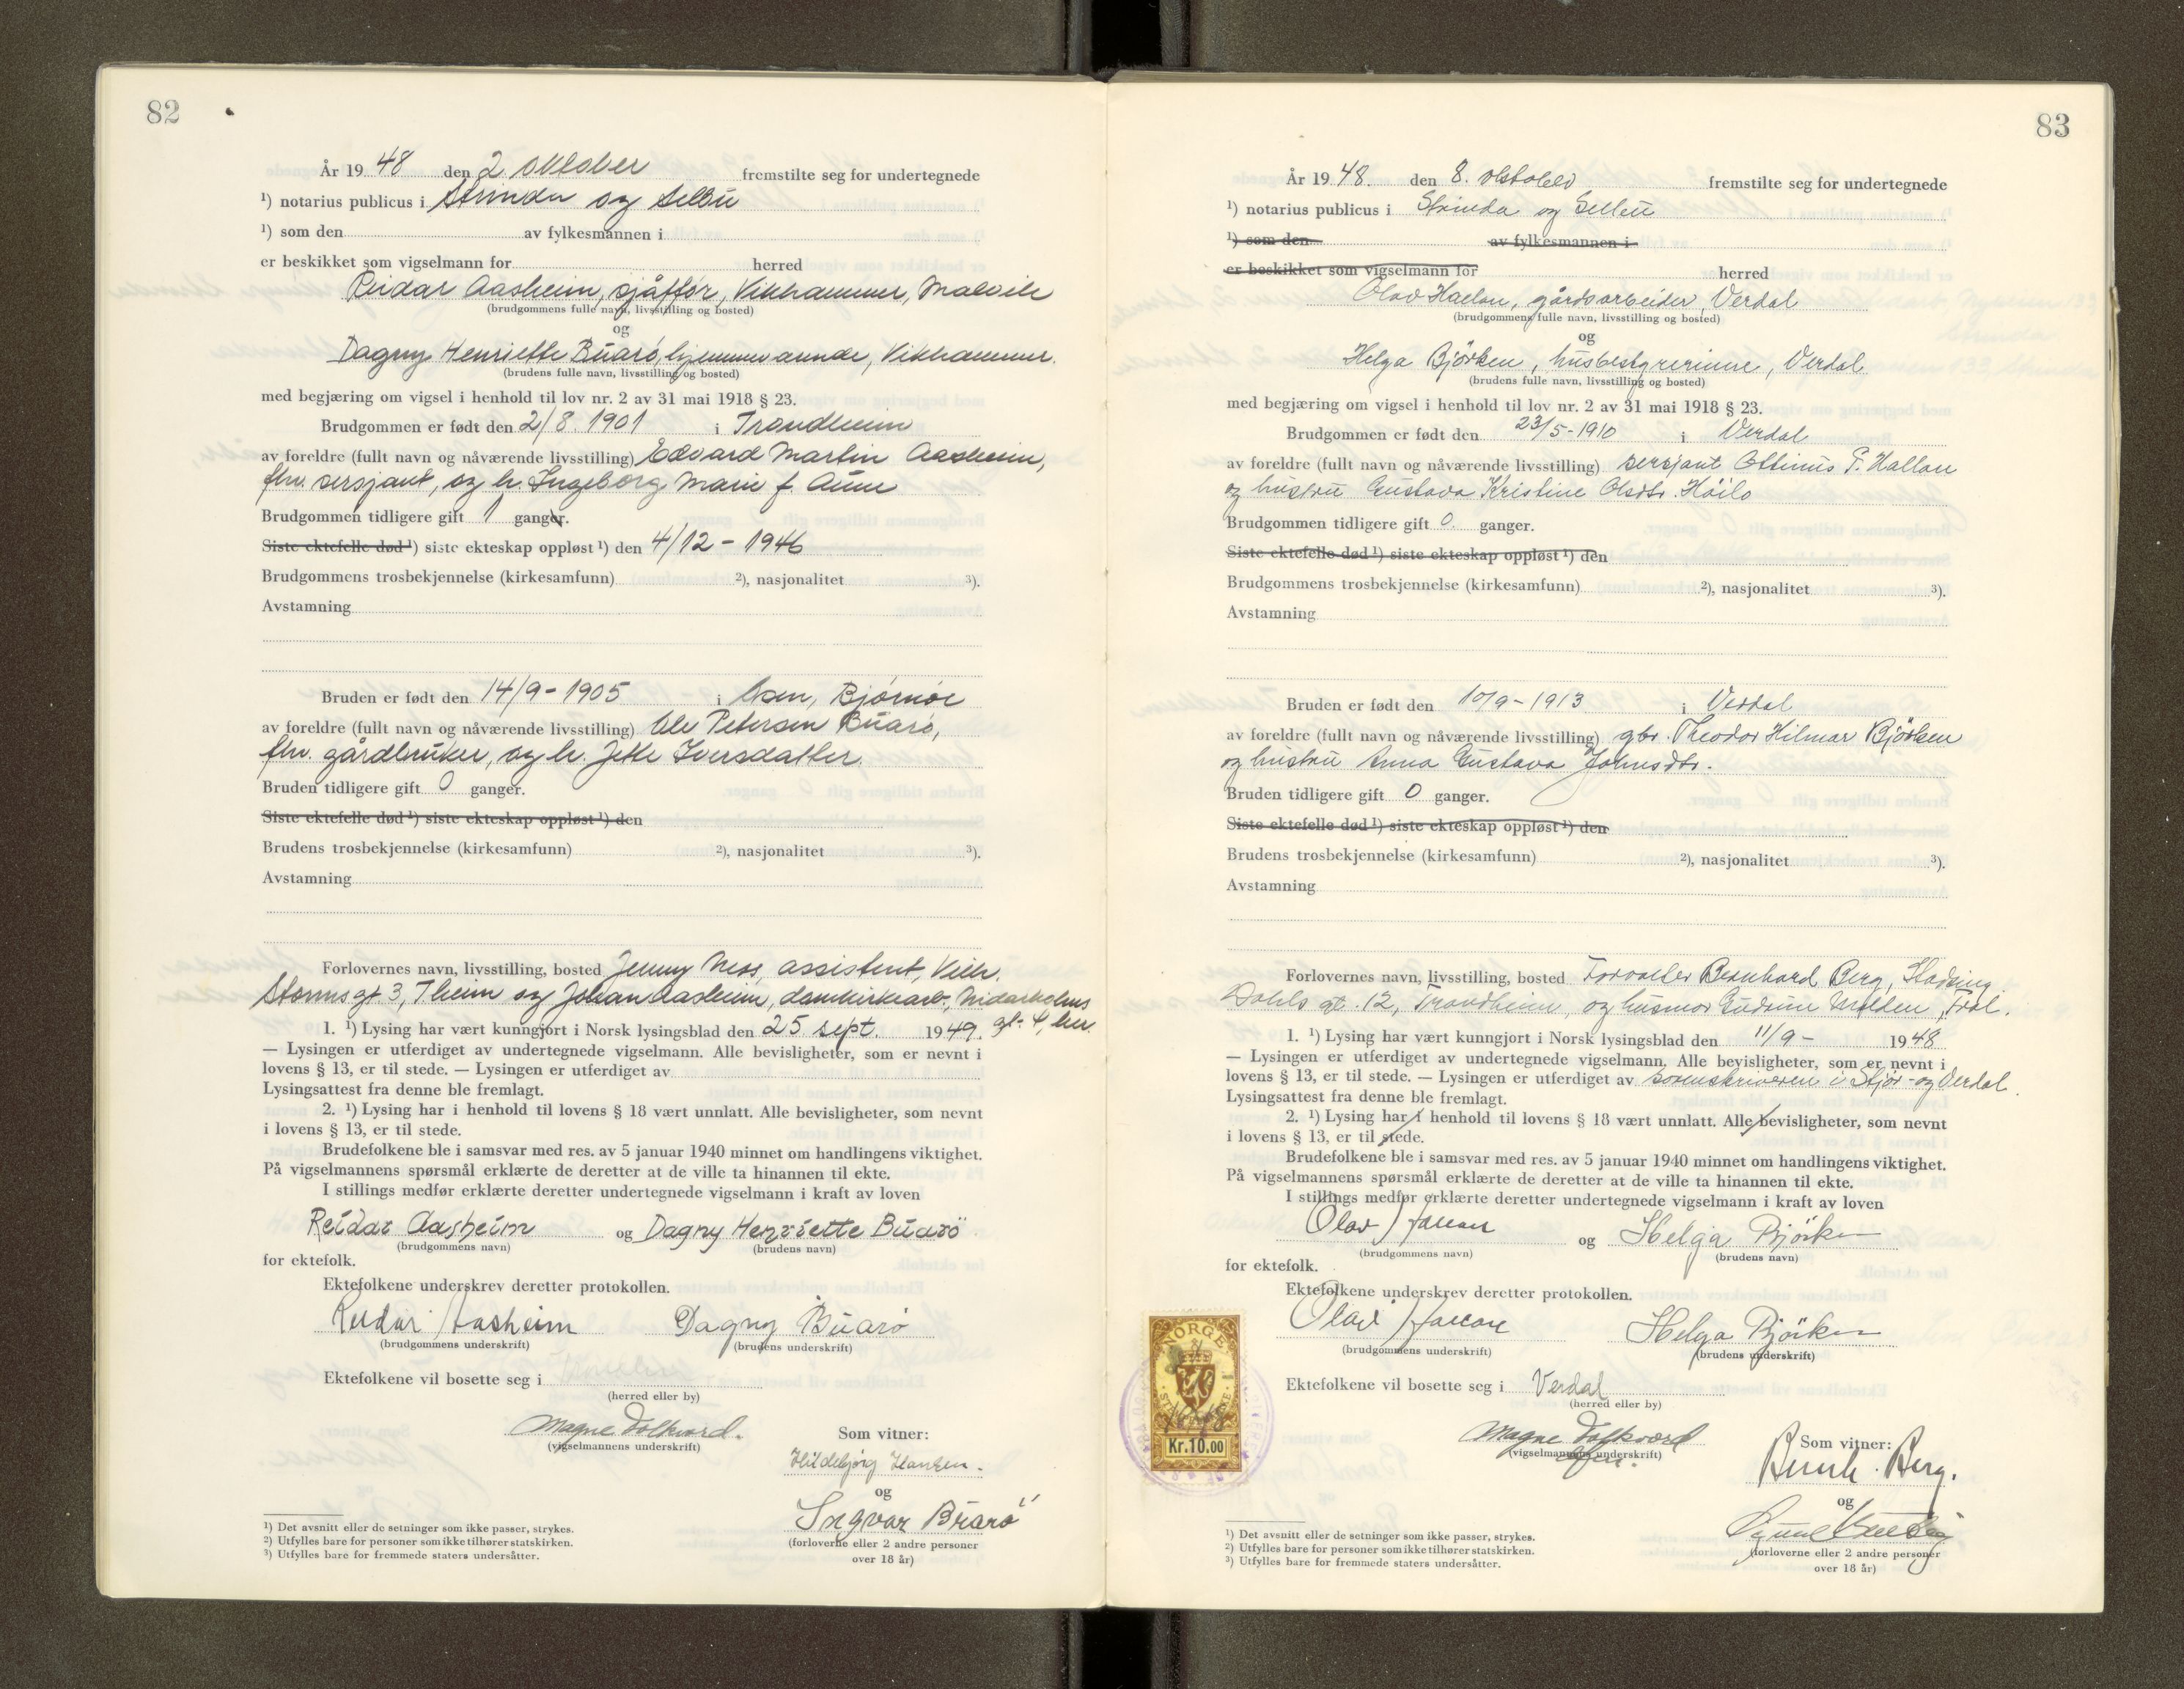 82
År 19 48 den 2. oktober fremstilte seg for undertegnede
¹) notarius publicus i Strinda og Selbu
¹) som den av fylkesmannen i
er beskikket som vigselmann for herred
Reidar Aasheim, sjåffør, Vikhammer, Malvik
(brudgommens fulle navn, livsstilling og bosted)
og
Dagny Henriette Buarø, hjemmeværende, Vikhammer.
(brudens fulle navn, livsstilling og bosted)
med begjæring om vigsel i henhold til lov nr. 2 av 31 mai 1918 § 23.
Brudgommen er født den 2/8. 1901 i Trondheim
av foreldre (fullt navn og nåværende livsstilling) Edvard Martin Aasheim,
fhv. sersjant, og h. Ingeborg Marie f. Aune
Brudgommen tidligere gift 1 ganger.
Siste ektefelle død ¹) siste ekteskap oppløst ¹) den 4/12 - 1946
Brudgommens trosbekjennelse (kirkesamfunn) ²), nasjonalitet ³).
Avstamning
Bruden er født den 14/9 - 1905 i Åsen, Bjørnør
av foreldre (fullt navn og nåværende livsstilling) Ole Petersen Buarø,
fhv. gårdbruker, og h. Jette Iversdatter.
Bruden tidligere gift 0 ganger.
Siste ektefelle død ¹) siste ekteskap oppløst ¹) den
Brudens trosbekjennelse (kirkesamfunn) ²), nasjonalitet ³).
Avstamning
Forlovernes navn, livsstilling, bosted Jenny Mos, assistent, Vilh.
Stormsgt 3, Theim og Johan Aasheim, domkirkearb., Nidarholms
gt. 4, her.
1. ¹) Lysing har vært kunngjort i Norsk lysingsblad den 25 sept. 1949.
— Lysingen er utferdiget av undertegnede vigselmann. Alle bevisligheter, som er nevnt i
lovens § 13, er til stede. — Lysingen er utferdiget av
Lysingsattest fra denne ble fremlagt.
2. ¹) Lysing har i henhold til lovens § 18 vært unnlatt. Alle bevisligheter, som nevnt
i lovens § 13, er til stede.
Brudefolkene ble i samsvar med res. av 5 januar 1940 minnet om handlingens viktighet.
På vigselmannens spørsmål erklærte de deretter at de ville ta hinannen til ekte.
I stillings medfør erklærte deretter undertegnede vigselmann i kraft av loven
Reidar Aasheim og Dagny Henriette Buarö
(brudgommens navn) (brudens navn)
for ektefolk.
Ektefolkene underskrev deretter protokollen.
Reidar Aasheim Dagny Buarø
(brudgommens underskrift) (brudens underskrift)
Ektefolkene vil bosette seg i
(herred eller by)
Magne Dalkvord.
(vigselmannens underskrift)
Som vitner:
Hildebjørg Hansen.
og
Ingvar Buarø
(forloverne eller 2 andre personer
over 18 år)
¹) Det avsnitt eller de setninger som ikke passer, strykes.
²) Utfylles bare for personer som ikke tilhører statskirken.
³) Utfylles bare for fremmede staters undersåtter.
83
År 19 48. den 8. oktober fremstilte seg for undertegnede
¹) notarius publicus i Strinda og Selbu
¹) som den av fylkesmannen i
er beskikket som vigselmann for herred
Olav Hallan, gårdsarbeider, Verdal
(brudgommens fulle navn, livsstilling og bosted)
og
Helga Björken, husbestyrerinne, Verdal
(brudens fulle navn, livsstilling og bosted)
med begjæring om vigsel i henhold til lov nr. 2 av 31 mai 1918 § 23.
Brudgommen er født den 23/5 - 1910 i Verdal
av foreldre (fullt navn og nåværende livsstilling) sersjant Ottinus P. Hallan
og hustru Gustava Kristine Olsdtr. Höilo
Brudgommen tidligere gift 0 ganger.
Siste ektefelle død ¹) siste ekteskap oppløst ¹) den
Brudgommens trosbekjennelse (kirkesamfunn) ²), nasjonalitet ³).
Avstamning
Bruden er født den 10/9 - 1913 i Verdal
av foreldre (fullt navn og nåværende livsstilling) gbr. Theodor Hilmar Björken
og hustru Anna Gustava Johnsdtr.
Bruden tidligere gift 0 ganger.
Siste ektefelle død ¹) siste ekteskap oppløst ¹) den
Brudens trosbekjennelse (kirkesamfunn) ²), nasjonalitet ³).
Avstamning
Forlovernes navn, livsstilling, bosted Forvalter Bernhard Berg,
Dahls gt. 12, Trondheim, og husmor Gudrun
1. ¹) Lysing har vært kunngjort i Norsk lysingsblad den 11/9 - 1948
— Lysingen er utferdiget av undertegnede vigselmann. Alle bevisligheter, som er nevnt i
lovens § 13, er til stede. — Lysingen er utferdiget av sorenskriveren i Stjør- og Verdal
Lysingsattest fra denne ble fremlagt.
2. ¹) Lysing har i henhold til lovens § 18 vært unnlatt. Alle bevisligheter, som nevnt
i lovens § 13, er til stede.
Brudefolkene ble i samsvar med res. av 5 januar 1940 minnet om handlingens viktighet.
På vigselmannens spørsmål erklærte de deretter at de ville ta hinannen til ekte.
I stillings medfør erklærte deretter undertegnede vigselmann i kraft av loven
Olav Hallan og Helga Björken
(brudgommens navn) (brudens navn)
for ektefolk.
Ektefolkene underskrev deretter protokollen.
Olav Hallan Helga Björken
(brudgommens underskrift) (brudens underskrift)
Ektefolkene vil bosette seg i Verdal
(herred eller by)
NORGE
Kr.10.00
Magne Dalkvord
(vigselmannens underskrift)
Som vitner:
Bernh. Berg.
og
(forloverne eller 2 andre personer
over 18 år)
¹) Det avsnitt eller de setninger som ikke passer, strykes.
²) Utfylles bare for personer som ikke tilhører statskirken.
³) Utfylles bare for fremmede staters undersåtter.